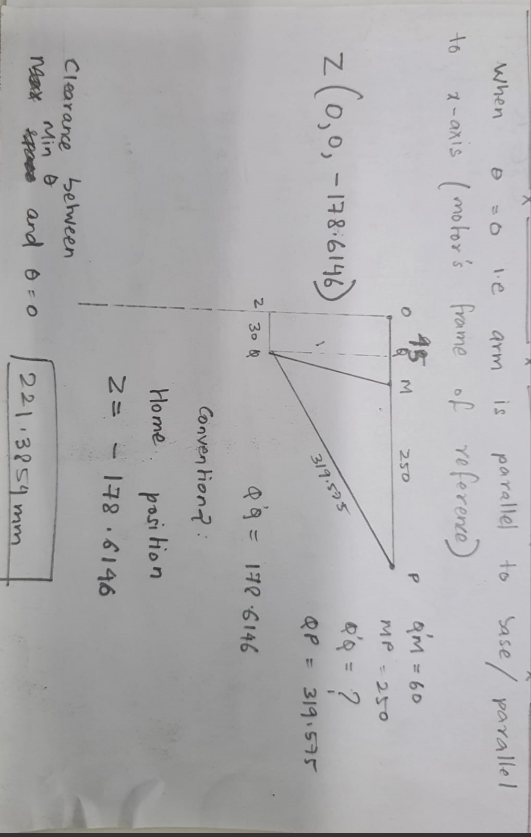 When θ = 0 i.e arm is parallel to base/parallel
to x-axis (motor's frame of reference)
Z (0, 0, -178.6146)
O 45 Q' M 250 P
Z 30 Q
319.575
Q'M = 60
MP = 250
Q'Q = ?
QP = 319.575
Q'Q = 178.6146
Convention?:
Home position
Z = - 178.6146
Clearance between
Min θ and θ = 0
221.3854 mm